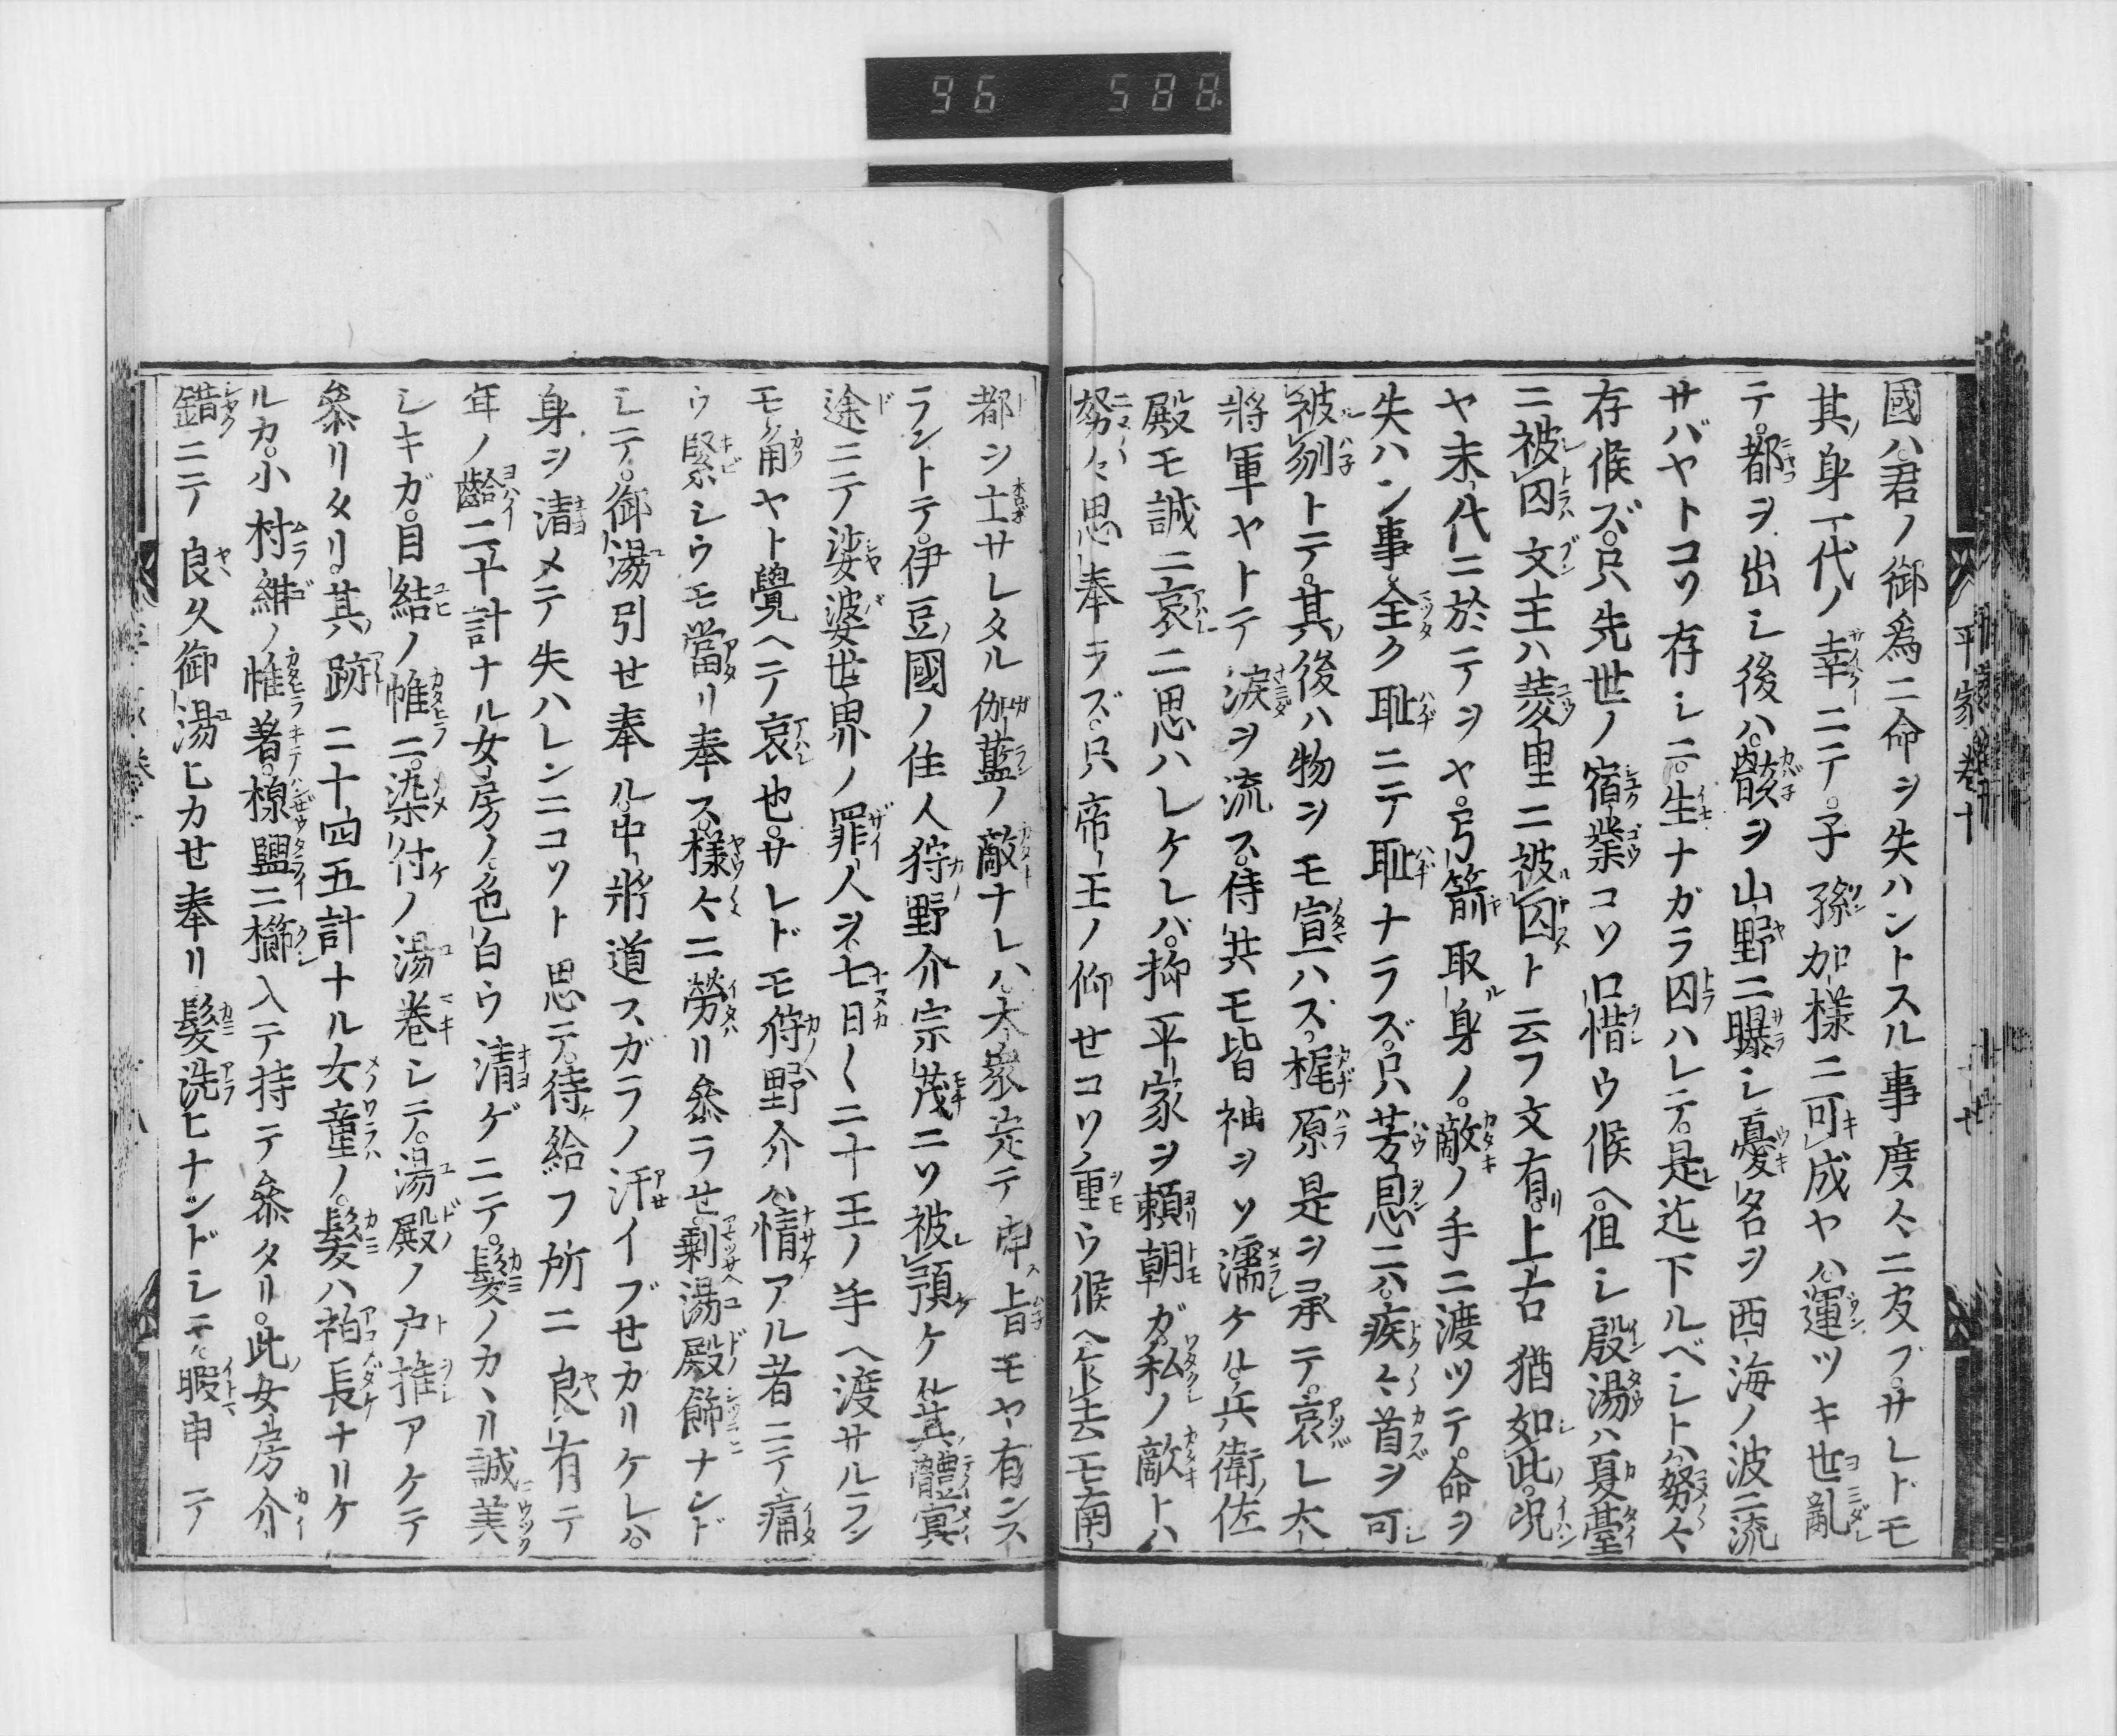 96 588
平家巻十
國ハ君ノ御爲ニ命ヲ失ハントスル事度々ニ及ブ。サレドモ
其ノ身一代ノ幸ニテ。子孫加様ニ可成ヤハ。運ツキ世亂
テ。都ヲ出シ後ハ。骸ヲ山野ニ曝シ憂名ヲ西海ノ波ニ流
サバヤトコソ存シニ。生ナガラ囚ハレテ。是迄下ルベシトハ。努々
存候ズ。只先世ノ宿業コソ口惜ウ候ヘ。但シ殷湯ハ夏臺
ニ被囚文王ハ羑里ニ被囚ト云フ文有リ。上古猶如此。況
ヤ末代ニ於テヲヤ。弓箭取身ノ。敵ノ手ニ渡ツテ。命ヲ
失ハン事全ク恥ニテ恥ナラズ。只芳恩ニハ。疾々首ヲ可
被刎トテ。其後ハ物ヲモ宣ハズ。梶原是ヲ承テ。哀レ大
將軍ヤトテ涙ヲ流ス。侍共モ皆袖ヲソ濡ケル。兵衛佐
殿モ誠ニ哀ニ思ハレケレバ。抑平家ヲ頼朝ガ私ノ敵トハ
努々思奉ラズ。只帝王ノ仰セコソ重ウ候ヘ。乍去モ南
都ヲ亡サレタル伽藍ノ敵ナレハ。大衆定テ申ス旨モヤ有ンス
ラントテ。伊豆ノ國ノ住人狩野介宗茂ニソ被預ケル。其ノ體冥
途ニテ娑婆世界ノ罪人ヲ。七日〱ニ十王ノ手ヘ渡サルラン
モ。角ヤト覺ヘテ哀也。サレドモ狩野介ハ。情アル者ニテ。痛
ウ緊シウモ當リ奉ス。様々ニ勞リ參ラセ。剰湯殿飾ナンド
シテ。御湯引セ奉ル。中將道スガラノ汗イブセカリケレハ。
身ヲ清メテ失ハレンニコソト思テ。待給フ所ニ良有テ
年ノ齢二十計ナル女房ノ。色白ウ清ゲニテ。髪ノカヽリ誠美
シキガ。目結ノ帷ニ。染付ノ湯巻シテ。湯殿ノ戸推アケテ
參リタリ。其ノ跡ニ十四五計ナル女童ノ。髪ハ袙長ナリケ
ルカ。小村紺ノ帷著。楾盥ニ櫛入テ持テ參タリ。此ノ女房介
錯ニテ良久御湯ヒカセ奉リ髪洗ヒナンドシテ。暇申テ